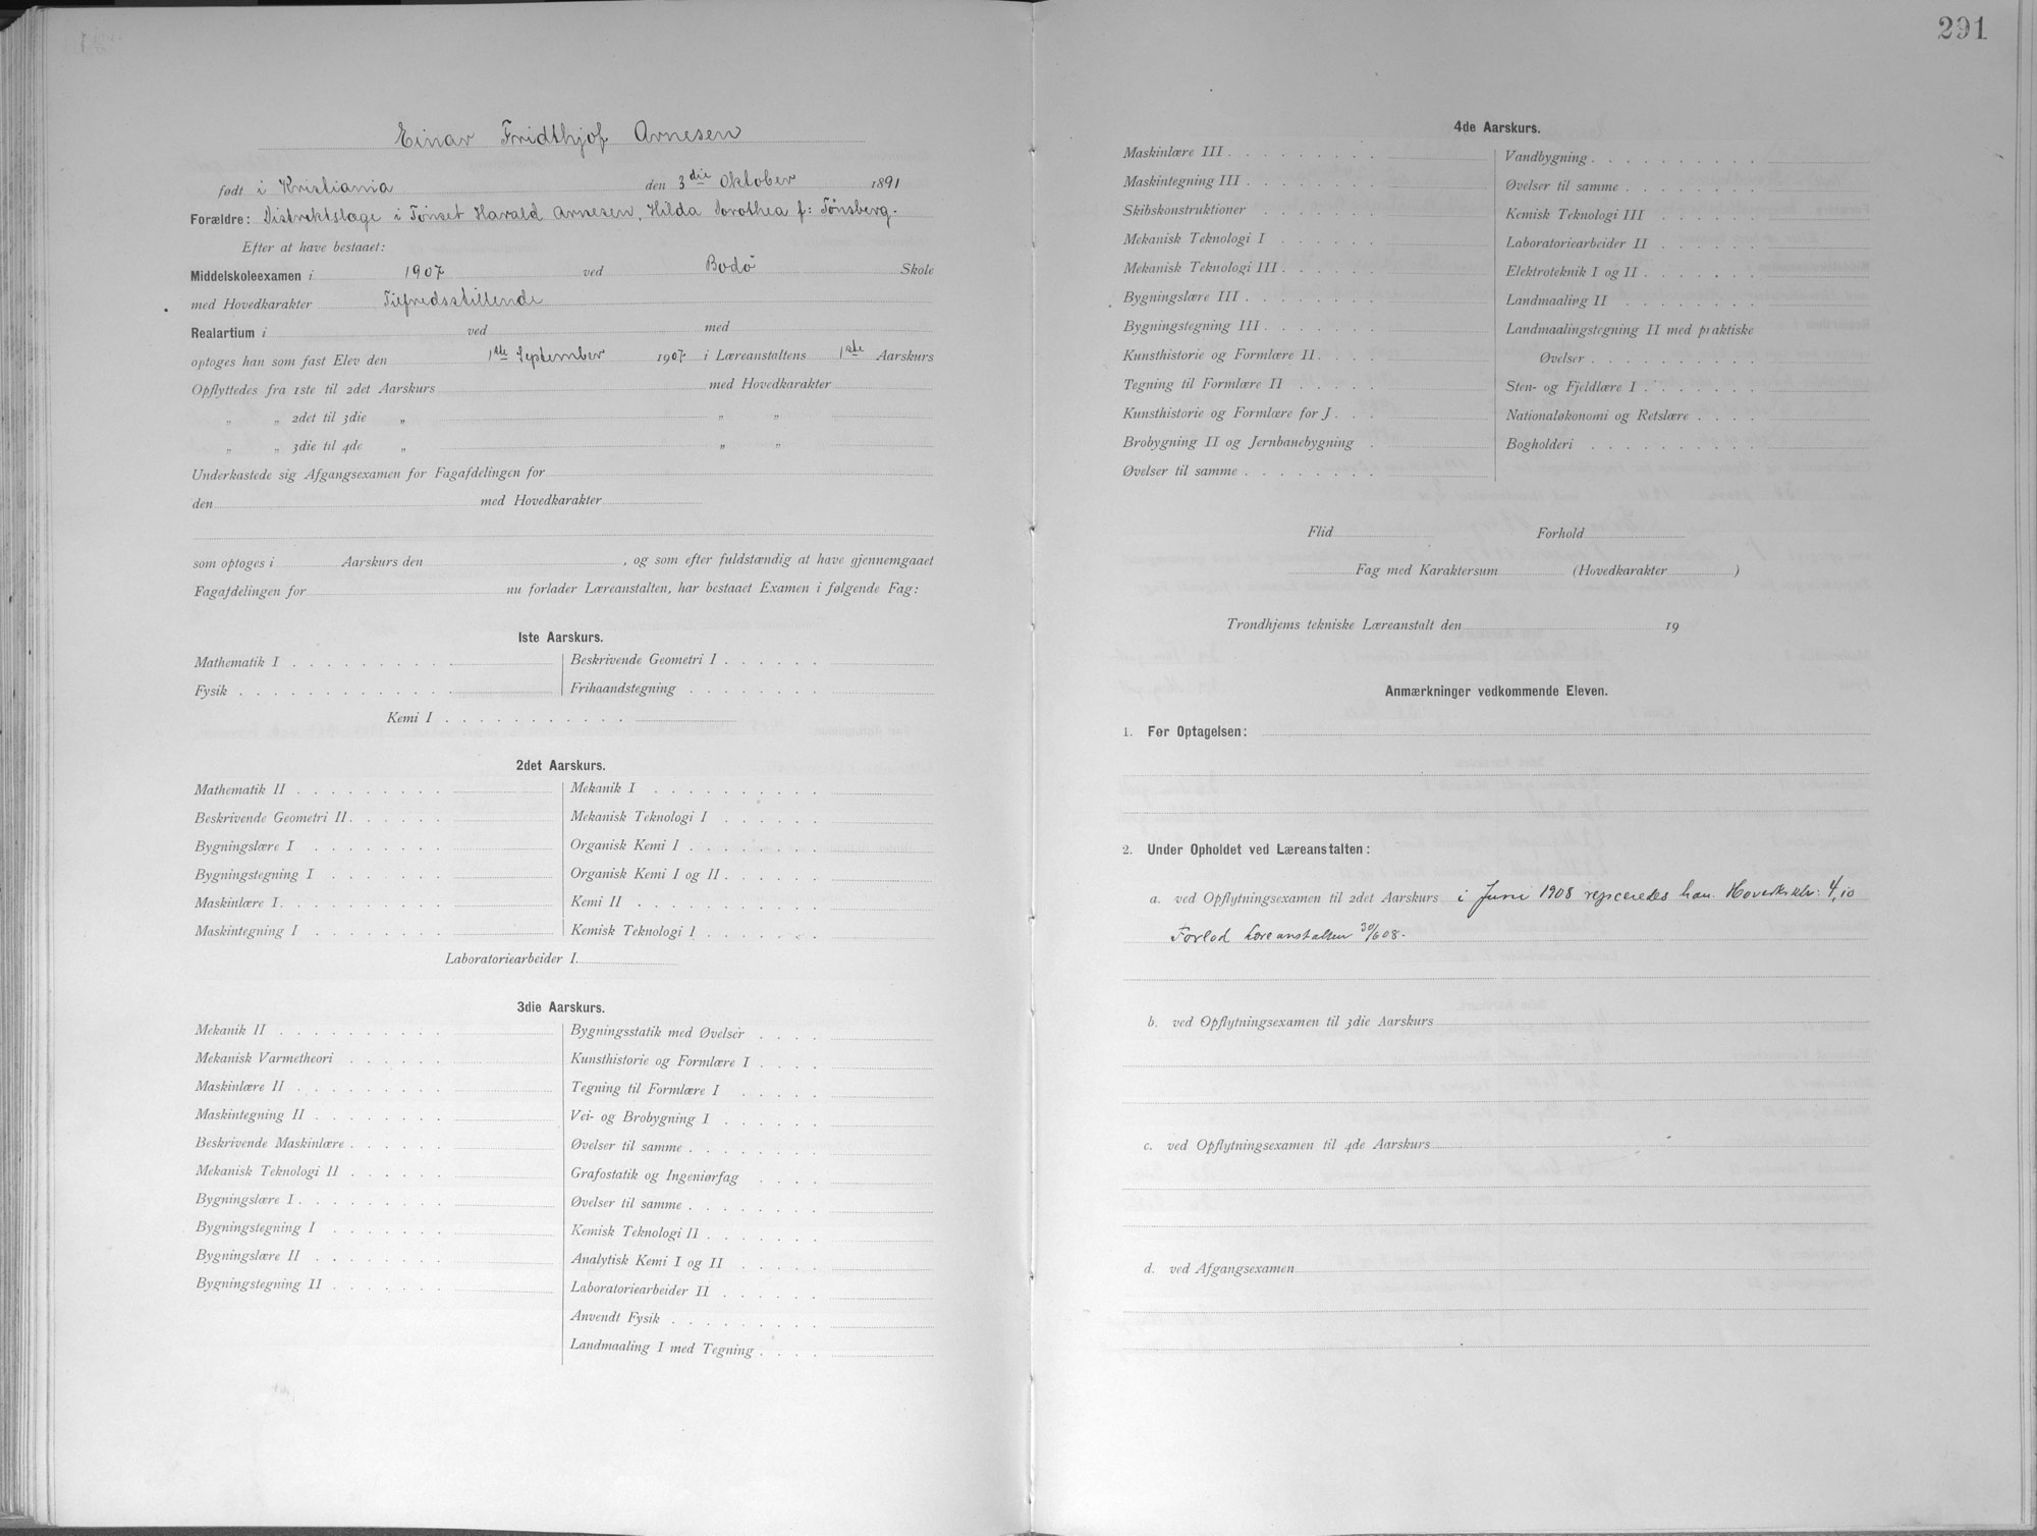 291
Einar Fridthjof Arnesen
født i Kristiania den 3die Oktober 1891
Forældre: Distriktslæge i Tönset Harald Arnesen, Hilda Dorothea f: Tönsberg.
Efter at have bestaaet:
Middelskoleexamen i 1907 ved Bodö Skole
med Hovedkarakter Tilfredsstillende
Realartium i ved med
optoges han som fast Elev den 1ste September 1907 i Læreanstaltens 1ste Aarskurs
Opflyttedes fra 1ste til 2det Aarskurs med Hovedkarakter
„ „ 2det til 3die „ „ „
„ „ 3die til 4de „ „ „
Underkastede sig Afgangsexamen for Fagafdelingen for
den med Hovedkarakter
som optoges i Aarskurs den , og som efter fuldstændig at have gjennemgaaet
Fagafdelingen for nu forlader Læreanstalten, har bestaaet Examen i følgende Fag:
1ste Aarskurs.
Mathematik I Beskrivende Geometri I
Fysik Frihaandstegning
Kemi I
2det Aarskurs.
Mathematik II Mekanik I
Beskrivende Geometri II Mekanisk Teknologi I
Bygningslære I Organisk Kemi I
Bygningstegning I Organisk Kemi I og II
Maskinlære I Kemi II
Maskintegning I Kemisk Teknologi I
Laboratoriearbeider I.
3die Aarskurs.
Mekanik II Bygningsstatik med Øvelser
Mekanisk Varmetheori Kunsthistorie og Formlære I
Maskinlære II Tegning til Formlære I
Maskintegning II Vei- og Brobygning I
Beskrivende Maskinlære Øvelser til samme
Mekanisk Teknologi II Grafostatik og Ingeniørfag
Bygningslære I Øvelser til samme
Bygningstegning I Kemisk Teknologi II
Bygningslære II Analytisk Kemi I og II
Bygningstegning II Laboratoriearbeider II
Anvendt Fysik
Landmaaling I med Tegning
4de Aarskurs.
Maskinlære III Vandbygning
Maskintegning III Øvelser til samme
Skibskonstruktioner Kemisk Teknologi III
Mekanisk Teknologi I Laboratoriearbeider II
Mekanisk Teknologi III Elektroteknik I og II
Bygningslære III Landmaaling II
Bygningstegning III Landmaalingstegning II med praktiske
Kunsthistorie og Formlære II Øvelser
Tegning til Formlære II Sten- og Fjeldlære I
Kunsthistorie og Formlære for J Nationaløkonomi og Retslære
Brobygning II og Jernbanebygning Bogholderi
Øvelser til samme
Flid Forhold
Fag med Karaktersum (Hovedkarakter )
Trondhjems tekniske Læreanstalt den 19
Anmærkninger vedkommende Eleven.
1. Før Optagelsen:
2. Under Opholdet ved Læreanstalten:
a. ved Opflytningsexamen til 2det Aarskurs i Juni 1908 rejiceredes han. 4,10
Forlod Læreanstalten 30/6 08.
b. ved Opflytningsexamen til 3die Aarskurs
c. ved Opflytningsexamen til 4de Aarskurs
d. ved Afgangsexamen